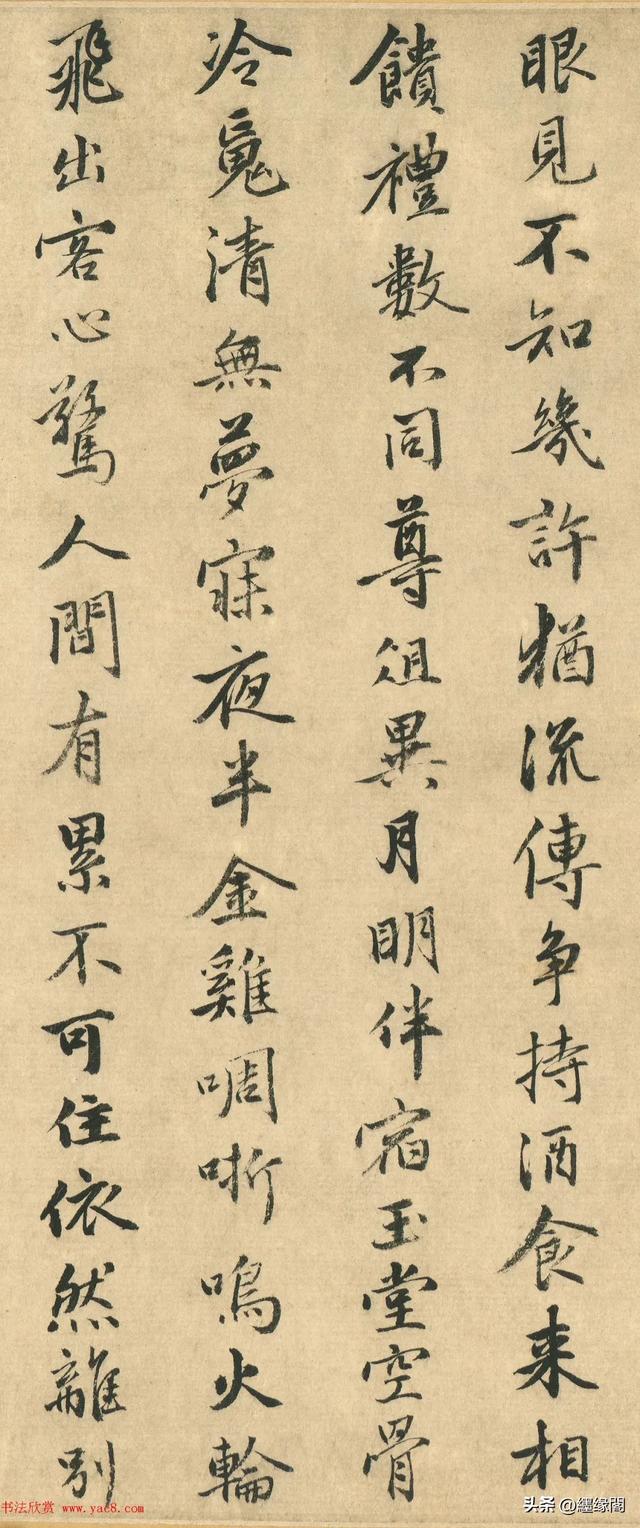 眼見不知幾許猶流傳争持酒食来相
饋禮數不同尊俎異月明伴宿玉堂空骨
冷䰟清無夢寐夜半金雞啁哳鳴火輪
飛出客心驚人間有累不可住依然離別
书法欣赏 www.yac8.com
头条 @纒缘閣